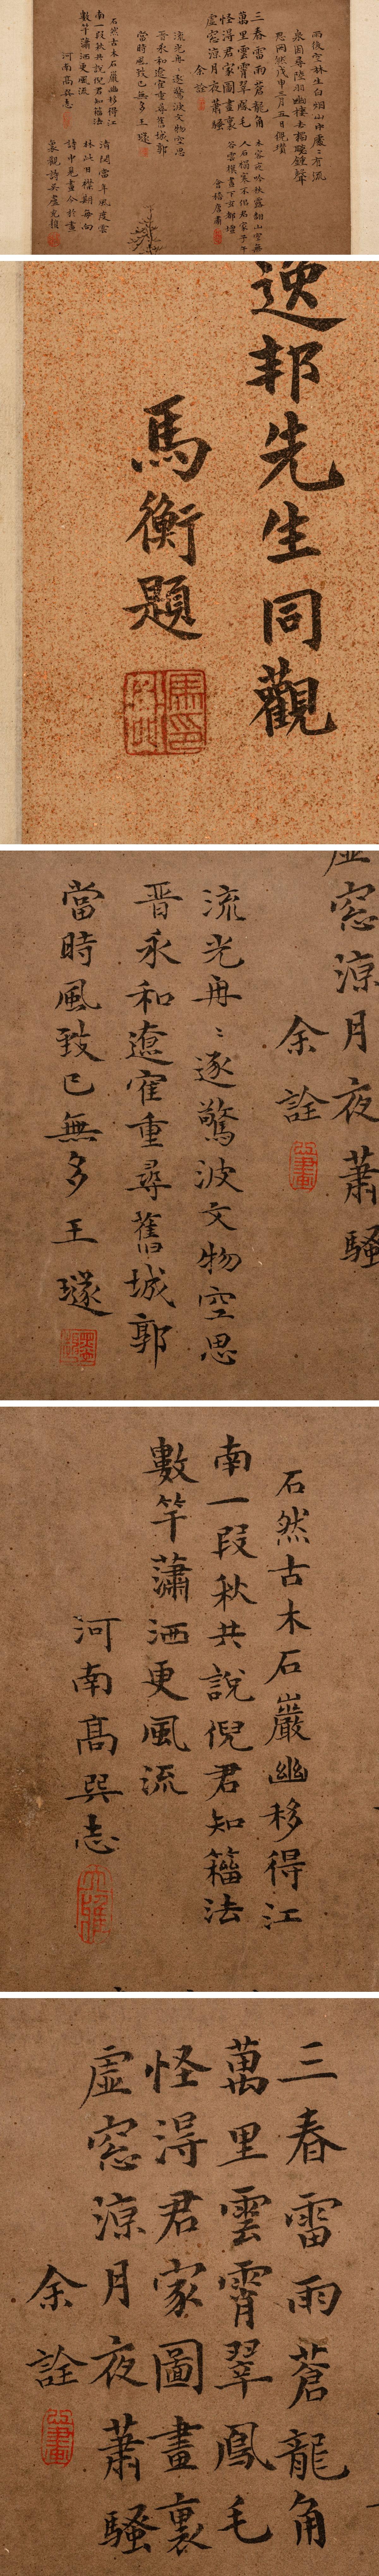 雨後空林生白烟山中處處有流
泉因尋陸羽幽棲去獨聽鐘聲
思罔然戊申三月五日倪瓚
三春雷雨蒼龍角
萬里雲霄翠鳳毛
怪得君家圖畫裏
虛窓涼月夜蕭騷
余詮
流光冉冉逐驚波文物空思
晉永和遼寉重尋舊城郭
當時風致已無多王璲
石然古木石巖幽移得江
南一段秋共說倪君知籀法
數竿蕭洒更風流
河南高巽志
逸邦先生同觀
馬衡題
虛窓涼月夜蕭騷
余詮
流光冉冉逐驚波文物空思
晉永和遼寉重尋舊城郭
當時風致已無多王璲
石然古木石巖幽移得江
南一段秋共說倪君知籀法
數竿蕭洒更風流
河南高巽志
三春雷雨蒼龍角
萬里雲霄翠鳳毛
怪得君家圖畫裏
虛窓涼月夜蕭騷
余詮